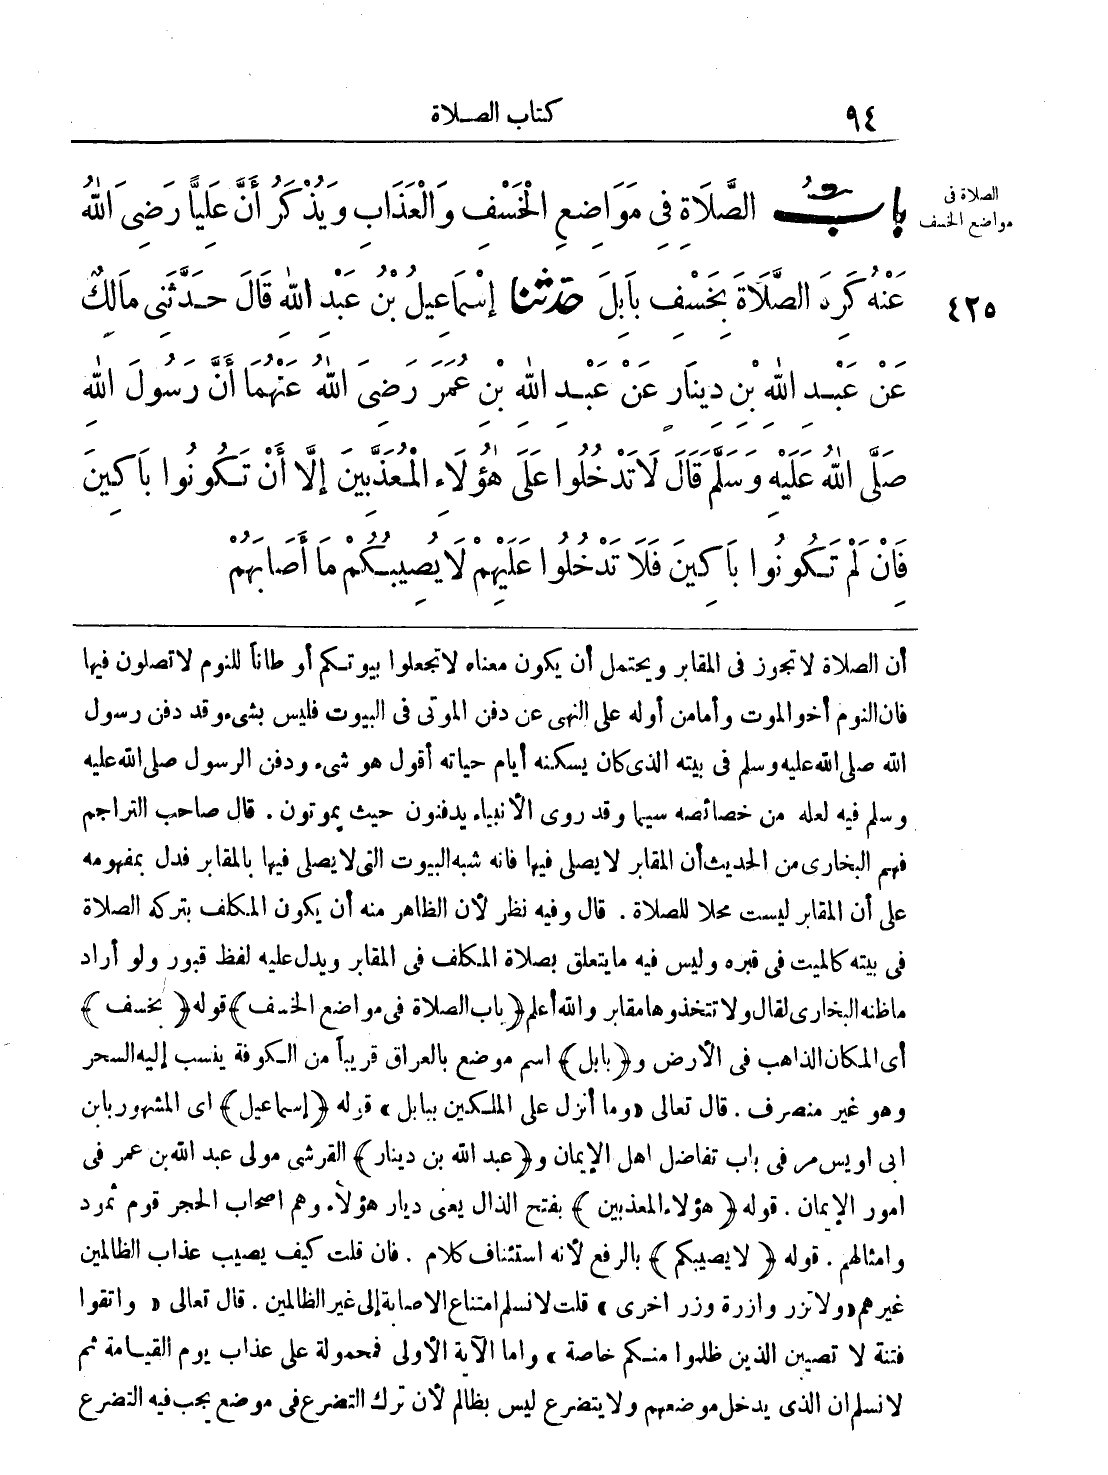 ٩٤
كتاب الصلاة
الصلاة فى
مواضع الخسف
بابُ الصَّلَاةِ فِى مَوَاضِعِ الْخَسْفِ وَالْعَذَابِ وَيُذْكَرُ أَنَّ عَلِيًّا رَضِىَ اللهُ
٤٢٥
عَنْهُ كَرِهَ الصَّلَاةَ بِخَسْفِ بَابِلَ حدثنا إِسْمَاعِيلُ بْنُ عَبْدِ اللهِ قَالَ حَدَّثَنِى مَالِكٌ
عَنْ عَبْدِ اللهِ بْنِ دِينَارٍ عَنْ عَبْدِ اللهِ بْنِ عُمَرَ رَضِىَ اللهُ عَنْهُمَا أَنَّ رَسُولَ اللهِ
صَلَّى اللهُ عَلَيْهِ وَسَلَّمَ قَالَ لَا تَدْخُلُوا عَلَى هٰؤُلَاءِ الْمُعَذَّبِينَ إِلَّا أَنْ تَكُونُوا بَاكِينَ
فَإِنْ لَمْ تَكُونُوا بَاكِينَ فَلَا تَدْخُلُوا عَلَيْهِمْ لَا يُصِيبُكُمْ مَا أَصَابَهُمْ
أن الصلاة لا تجوز فى المقابر ويحتمل أن يكون معناه لا تجعلوا بيوتكم أوطاناً للنوم لا تصلون فيها
فان النوم أخو الموت وأما من أوله على النهى عن دفن الموتى فى البيوت فليس بشىء وقد دفن رسول
الله صلى الله عليه وسلم فى بيته الذى كان يسكنه أيام حياته أقول هو شىء ودفن الرسول صلى الله عليه
وسلم فيه لعله من خصائصه سيما وقد روى الأنبياء يدفنون حيث يموتون . قال صاحب التراجم
فهم البخارى من الحديث أن المقابر لا يصلى فيها فانه شبه البيوت التى لا يصلى فيها بالمقابر فدل بمفهومه
على أن المقابر ليست محلا للصلاة . قال وفيه نظر لأن الظاهر منه أن يكون المكلف بتركه الصلاة
فى بيته كالميت فى قبره وليس فيه ما يتعلق بصلاة المكلف فى المقابر ويدل عليه لفظ قبور ولو أراد
ماظنه البخارى لقال ولا تتخذوها مقابر والله أعلم ﴿باب الصلاة فى مواضع الخسف﴾ قوله ﴿بخسف﴾
أى المكان الذاهب فى الأرض و﴿بابل﴾ اسم موضع بالعراق قريباً من الكوفة ينسب إليه السحر
وهو غير منصرف . قال تعالى «وما أنزل على الملكين ببابل» قوله ﴿إسماعيل﴾ اى المشهور بابن
ابى اويس مر فى باب تفاضل اهل الإيمان و﴿عبد الله بن دينار﴾ القرشى مولى عبد الله بن عمر فى
امور الإيمان . قوله ﴿هؤلاء المعذبين﴾ بفتح الذال يعنى ديار هؤلاء وهم اصحاب الحجر قوم ثمود
وامثالهم . قوله ﴿لا يصيبكم﴾ بالرفع لأنه استئناف كلام . فان قلت كيف يصيب عذاب الظالمين
غيرهم «ولا تزر وازرة وزر اخرى» قلت لا نسلم امتناع الاصابة إلى غير الظالمين . قال تعالى «واتقوا
فتنة لا تصيبن الذين ظلموا منكم خاصة» واما الآية الأولى فمحمولة على عذاب يوم القيامة ثم
لا نسلم ان الذى يدخل موضعهم ولا يتضرع ليس بظالم لأن ترك التضرع فى موضع يجب فيه التضرع